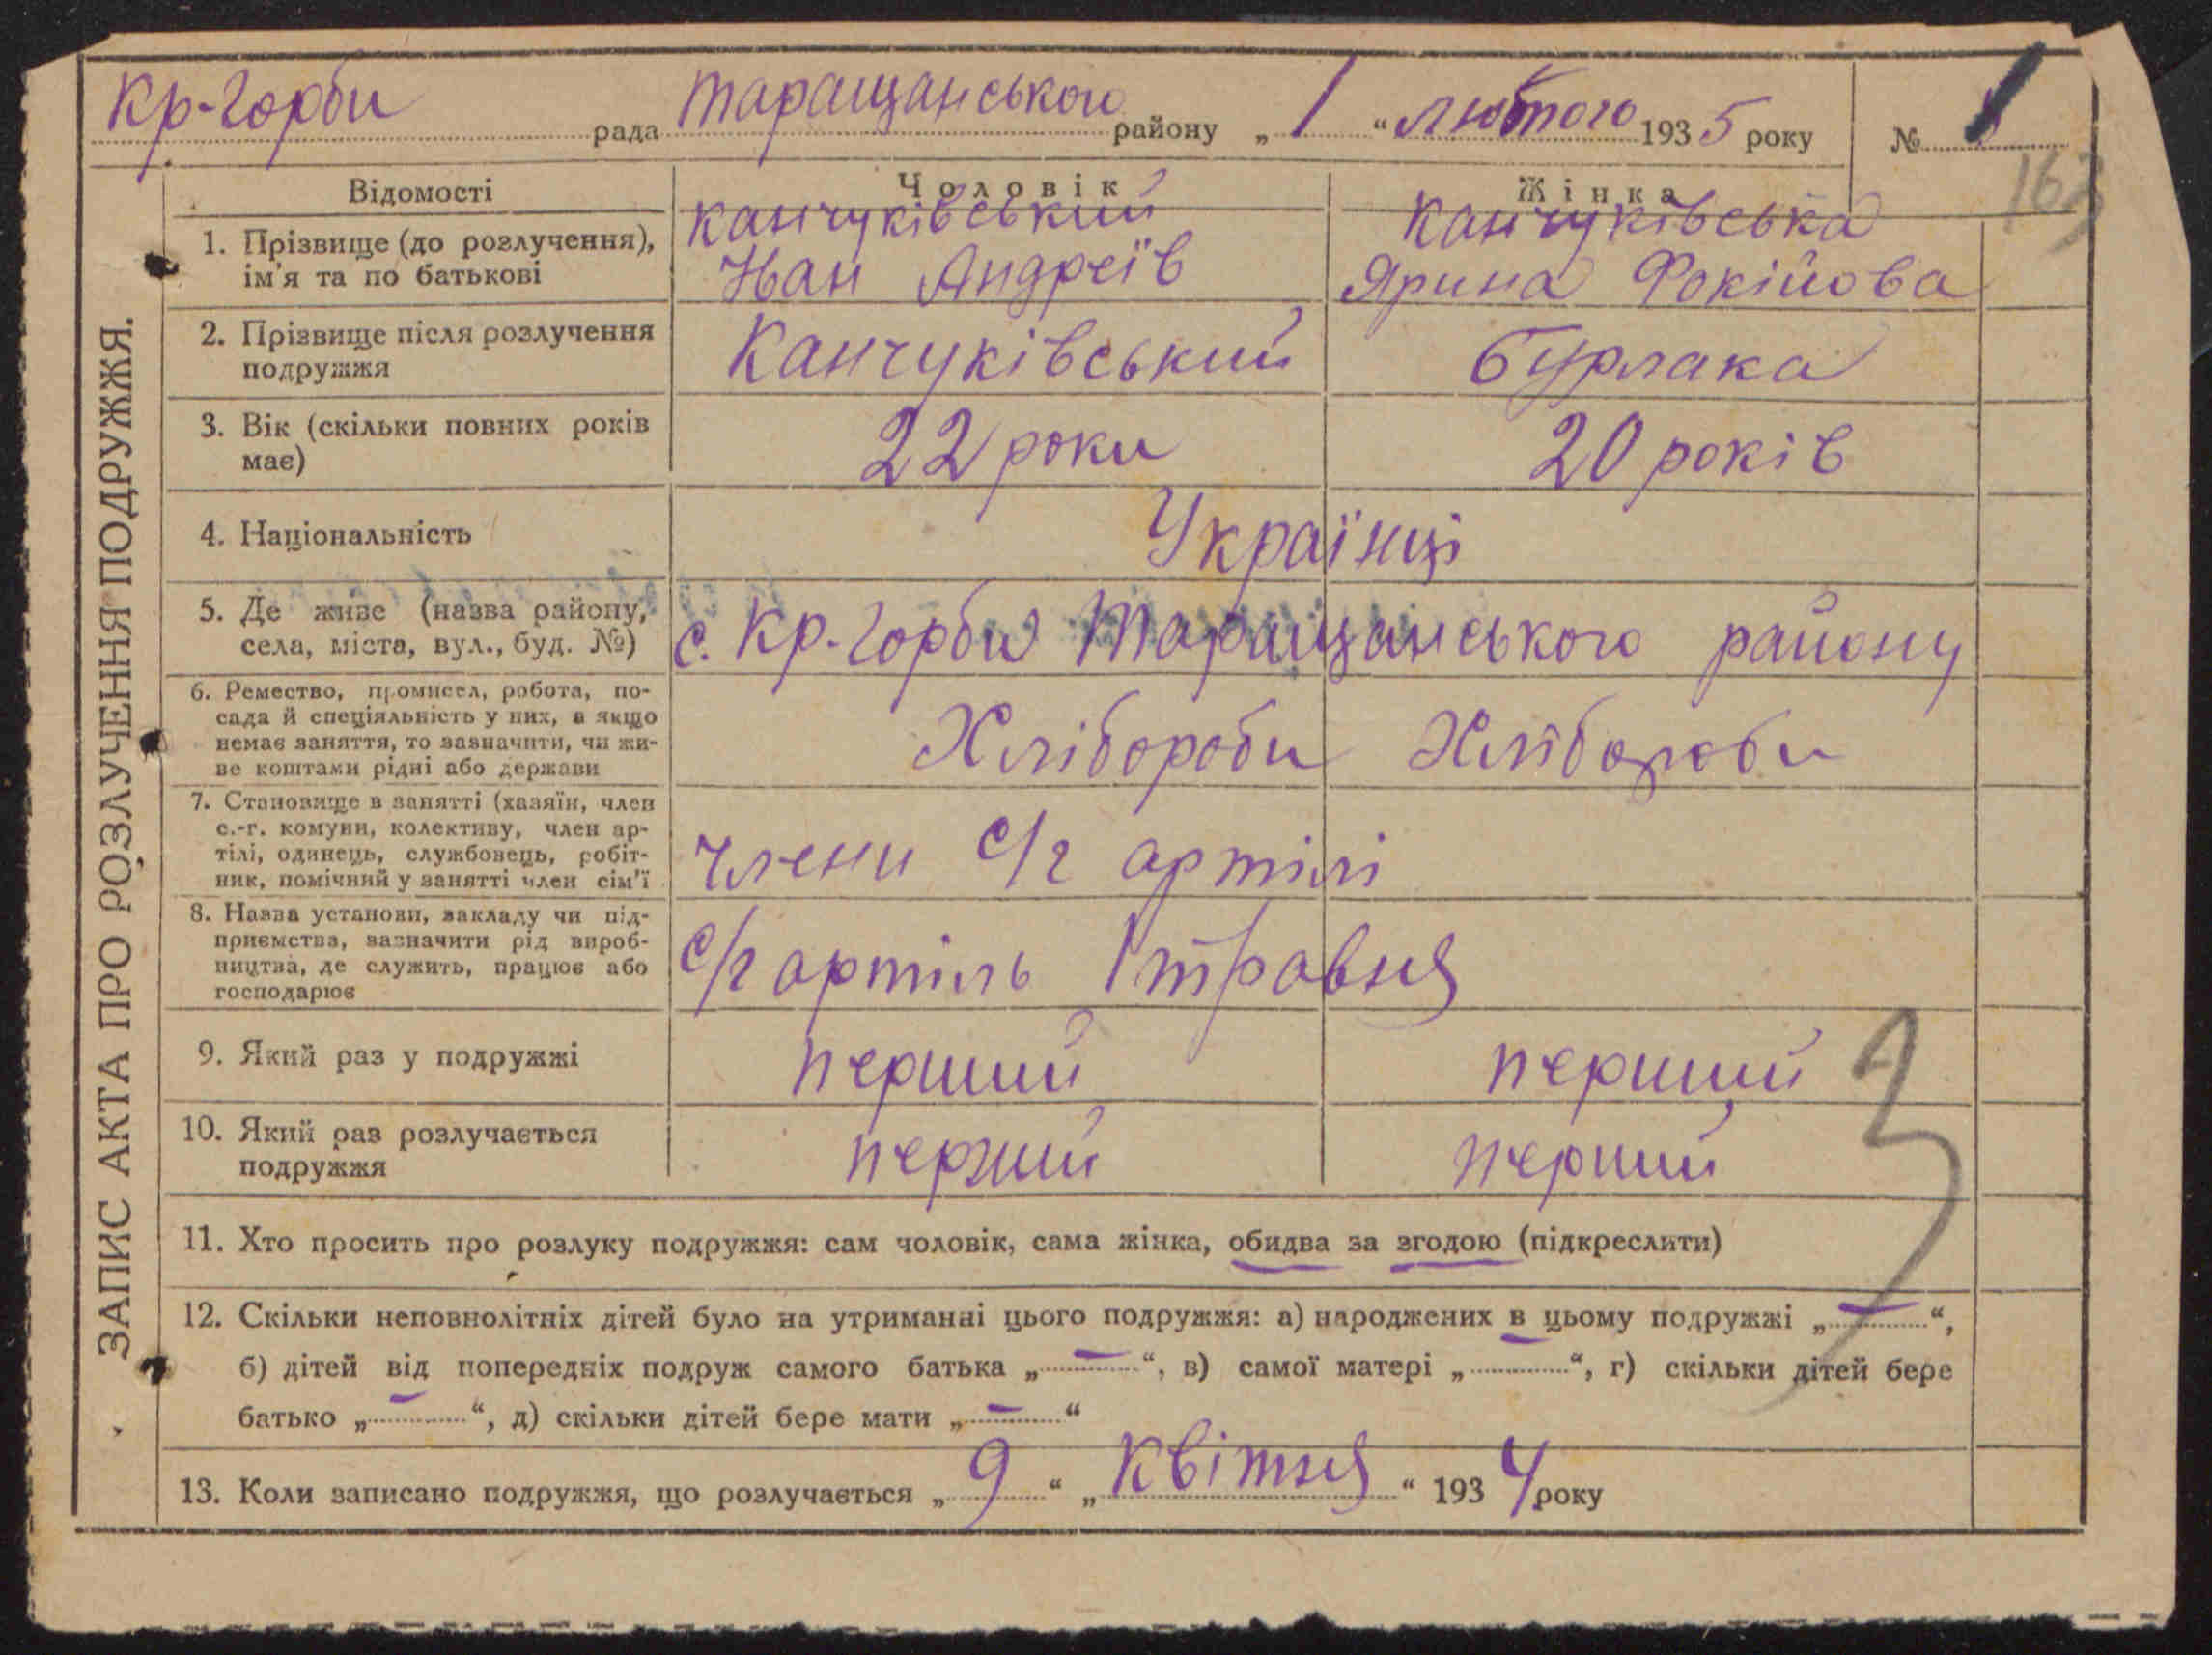 Кр-Горби рада Таращанського району „ 1 “ лютого 1935 року № 1
163
ЗАПИС АКТА ПРО РОЗЛУЧЕННЯ ПОДРУЖЖЯ.
Відомості Чоловік Жінка
1. Прізвище (до розлучення), ім'я та по батькові
Канчуківський
Іван Андреїв
Канчуківська
Ярина Фокійова
2. Прізвище після розлучення
подружжя
Канчуківський Бурлака
3. Вік (скільки повних років
має)
22 роки 20 років
4. Національність Українці
5. Де живе (назва району,
села, міста, вул., буд. №)
с. Кр-Горби Таращанського району
6. Ремество, промисел, робота, по-
сада й спеціяльність у них, а якщо
немає заняття, то зазначити, чи жи-
ве коштами рідні або держави
Хлібороби Хлібороби
7. Становище в занятті (хазяїн, член
с.-г. комуни, колективу, член ар-
тілі, одинець, службовець, робіт-
ник, помічний у занятті член сім'ї
члени с/г артілі
8. Назва установи, закладу чи під-
приємства, зазначити рід вироб-
ництва, де служить, працює або
господарює
с/г артіль 1 травня
9. Який раз у подружжі перший перший
10. Який раз розлучається
подружжя
перший перший
11. Хто просить про розлуку подружжя: сам чоловік, сама жінка, обидва за згодою (підкреслити)
12. Скільки неповнолітніх дітей було на утриманні цього подружжя: а) народжених в цьому подружжі „ — “,
б) дітей від попередніх подруж самого батька „ — “, в) самої матері „ — “, г) скільки дітей бере
батько „ — “, д) скільки дітей бере мати „ — “
13. Коли записано подружжя, що розлучається „ 9 “ „ Квітня “ 1934 року